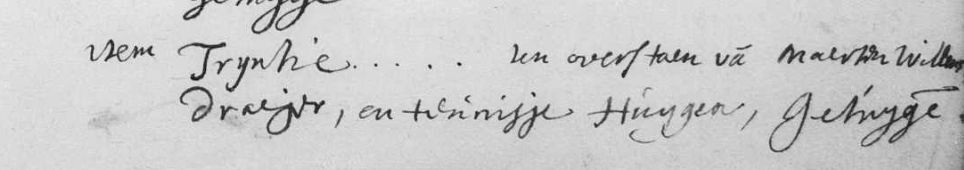 getuyge
item Tryntie ..... ten overstaen vā Maerten Willems
draeijer, en teunisje Huygen, Getuygē